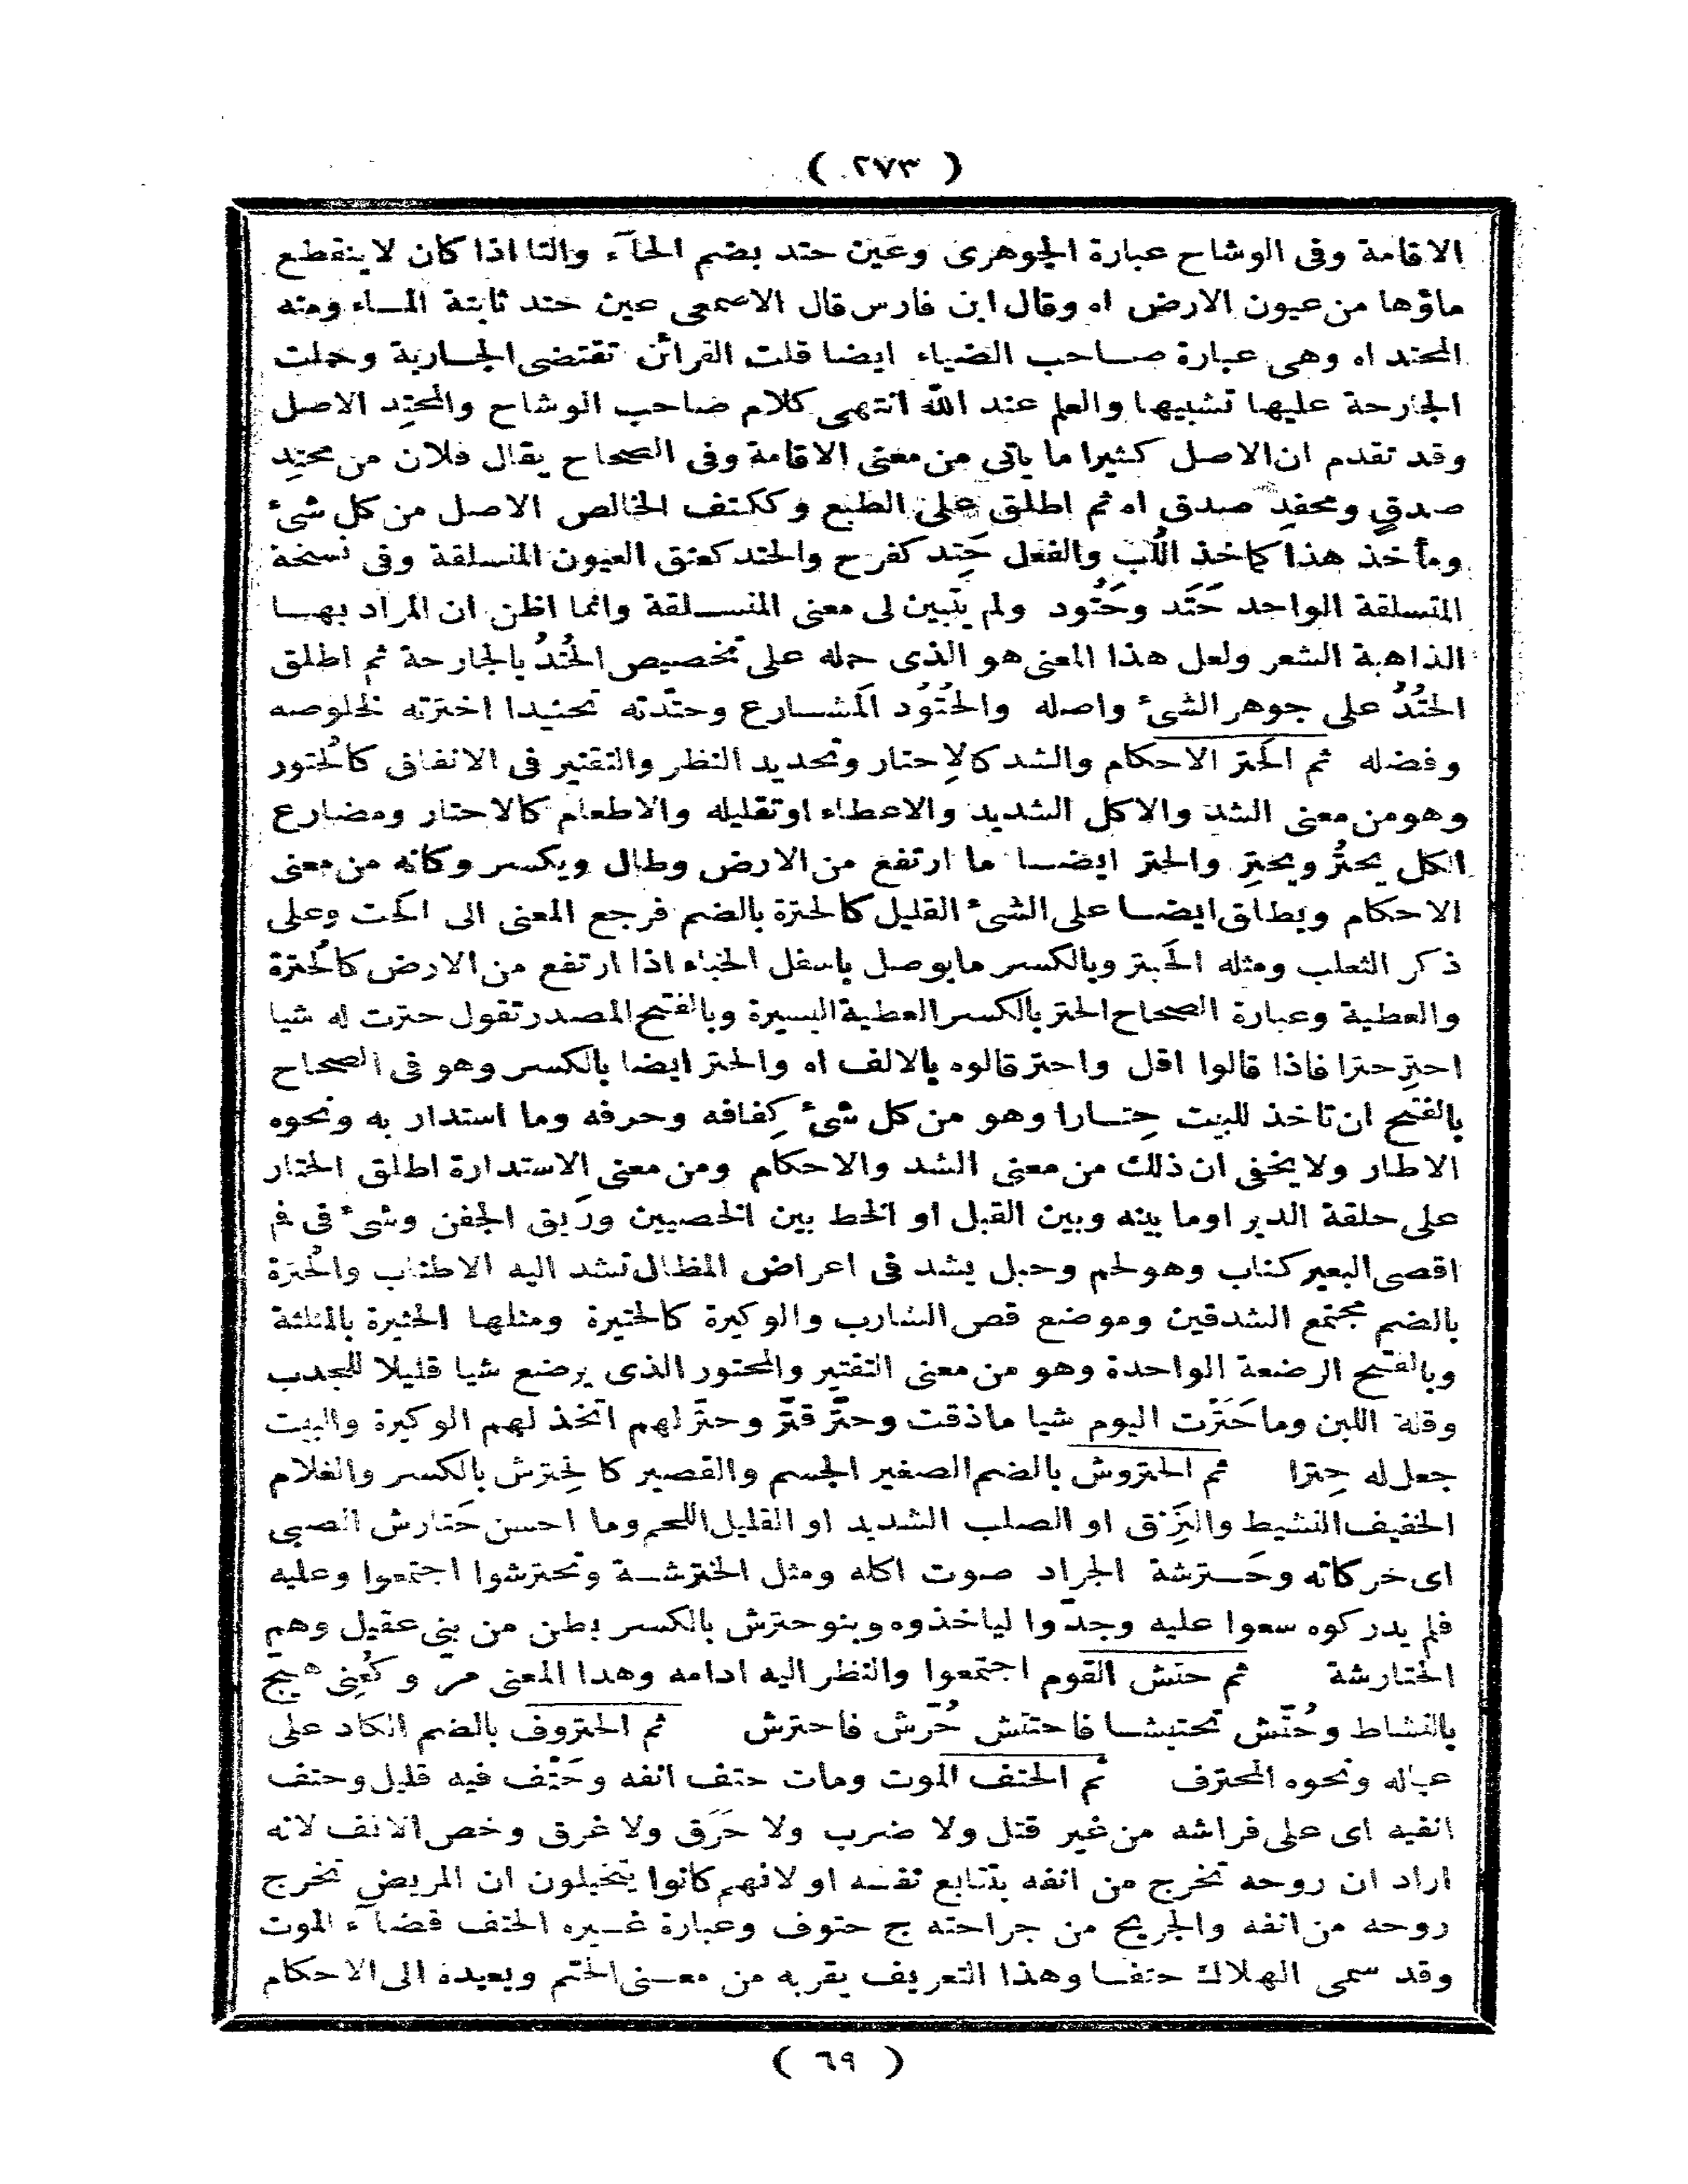 ( ٢٧٣ )
الاقامة وفى الوشاح عبارة الجوهرى وعين حتد بضم الحآء والتا اذا كان لا ينقطع
ماؤها من عيون الارض اه وقال ابن فارس قال الاصمعى عين حتد ثابتة المـاء ومنه
المحتد اه وهى عبارة صـاحب الضياء ايضا قلت القرائن تقتضى الجـارية وحملت
الجارحة عليها تشبيها والعلم عند الله انتهى كلام صاحب الوشاح والمحتِد الاصل
وقد تقدم ان الاصل كثيرا ما ياتى من معنى الاقامة وفى الصحاح يقال فلان من محتِد
صدقٍ ومحفِد صدق اه ثم اطلق على الطبع وككتف الخالص الاصل من كل شىء
ومأخذ هذا كماخذ اللُب والفعل حَتِد كفرح والحتد كعنق العيون المنسلقة وفى نسخة
المتسلقة الواحد حَتَد وحَتُود ولم يتبين لى معنى المنسـلقة وانما اظن ان المراد بهـا
الذاهبة الشعر ولعل هذا المعنى هو الذى حمله على تخصيص الحُتُد بالجارحة ثم اطلق
الحُتُدُ على جوهر الشىء واصله والحُتُود المَشـارع وحتّدته تحتيدا اخترته لخلوصه
وفضله ثم الحَتر الاحكام والشد كالاِحتار وتحديد النظر والتقتير فى الانفاق كالحُتور
وهو من معنى الشد والاكل الشديد والاعطاء او تقليله والاطعام كالاحتار ومضارع
الكل يحتُر ويحتِر والحتر ايضـا ما ارتفع من الارض وطال ويكسر وكانه من معنى
الاحكام ويطلق ايضـا على الشىء القليل كالحترة بالضم فرجع المعنى الى الحَت وعلى
ذكر الثعلب ومثله الحَبتر وبالكسر ما يوصل باسفل الخباء اذا ارتفع من الارض كالحُترة
والعطية وعبارة الصحاح الحتر بالكسر العطية اليسيرة وبالفتح المصدر تقول حترت له شيا
احتِر حترا فاذا قالوا اقل واحتر قالوه بالالف اه والحتر ايضا بالكسر وهو فى الصحاح
بالفتح ان تاخذ للبيت حِتـارا وهو من كل شىء كِفافه وحرفه وما استدار به ونحوه
الاطار ولا يخفى ان ذلك من معنى الشد والاحكام ومن معنى الاستدارة اطلق الحتار
على حلقة الدبر او ما بينه وبين القبل او الخط بين الخصيين وريق الجفن وشىء فى فم
اقصى البعير كناب وهو لحم وحبل يشد فى اعراض المظال تشد اليه الاطناب والحُترة
بالضم مجتمع الشدقين وموضع قص الشارب والوكيرة كالحتيرة ومثلها الحثيرة بالمثلثة
وبالفتح الرضعة الواحدة وهو من معنى التقتير والمحتور الذى يرضع شيا قليلا للجدب
وقلة اللبن وما حَتَرْت اليوم شيا ما ذقت وحتّر قتّر وحتّر لهم اتخذ لهم الوكيرة والبيت
جعل له حِترا ثم الحتروش بالضم الصغير الجسم والقصير كالحِترش بالكسر والغلام
الخفيف النشيط والنَزِق او الصلب الشديد او القليل اللحم وما احسن حَتارش الصبى
اى حركاته وحَـترشة الجراد صوت اكله ومثل الخترشـة وتحترشوا اجتمعوا وعليه
فلم يدركوه سعوا عليه وجدّوا لياخذوه وبنو حترش بالكسر بطن من بنى عقيل وهم
الحتارشة ثم حتش القوم اجتمعوا والنظر اليه ادامه وهذا المعنى مر وكعُنِى هيج
بالنشاط وحُتّش تحتيشـا فاحتتش حُرّش فاحترش ثم الحتروف بالضم الكاد على
عياله ونحوه المحترف ثم الحتف الموت ومات حتف انفه وحَتْف فيه قليل وحتف
انفيه اى على فراشه من غير قتل ولا ضرب ولا حَرَق ولا غرق وخص الانف لانه
اراد ان روحه تخرج من انفه بتتابع نفسه او لانهم كانوا يتخيلون ان المريض تخرج
روحه من انفه والجريح من جراحته ج حتوف وعبارة غـيره الحتف قضآء الموت
وقد سمى الهلاك حتفـا وهذا التعريف يقربه من معـنى الحتم ويعيده الى الاحكام
( ٦٩ )